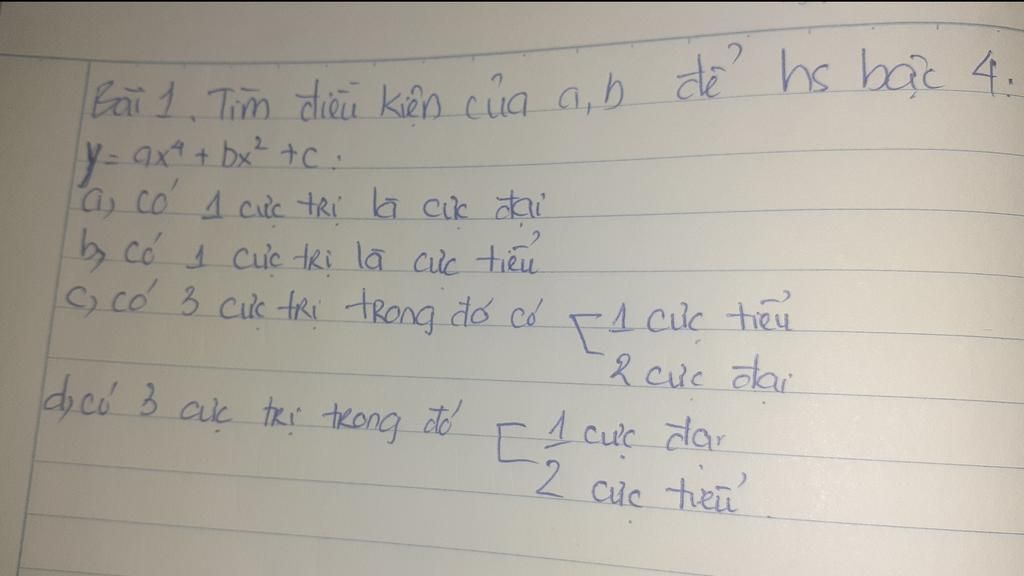 Bài 1. Tìm điều kiện của a, b để hs bậc 4:
y = ax⁴ + bx² + c.
a, có 1 cực trị là cực đại
b, có 1 cực trị là cực tiểu
c, có 3 cực trị trong đó có [ 1 cực tiểu
2 cực đại
d, có 3 cực trị trong đó [ 1 cực đại
2 cực tiểu.